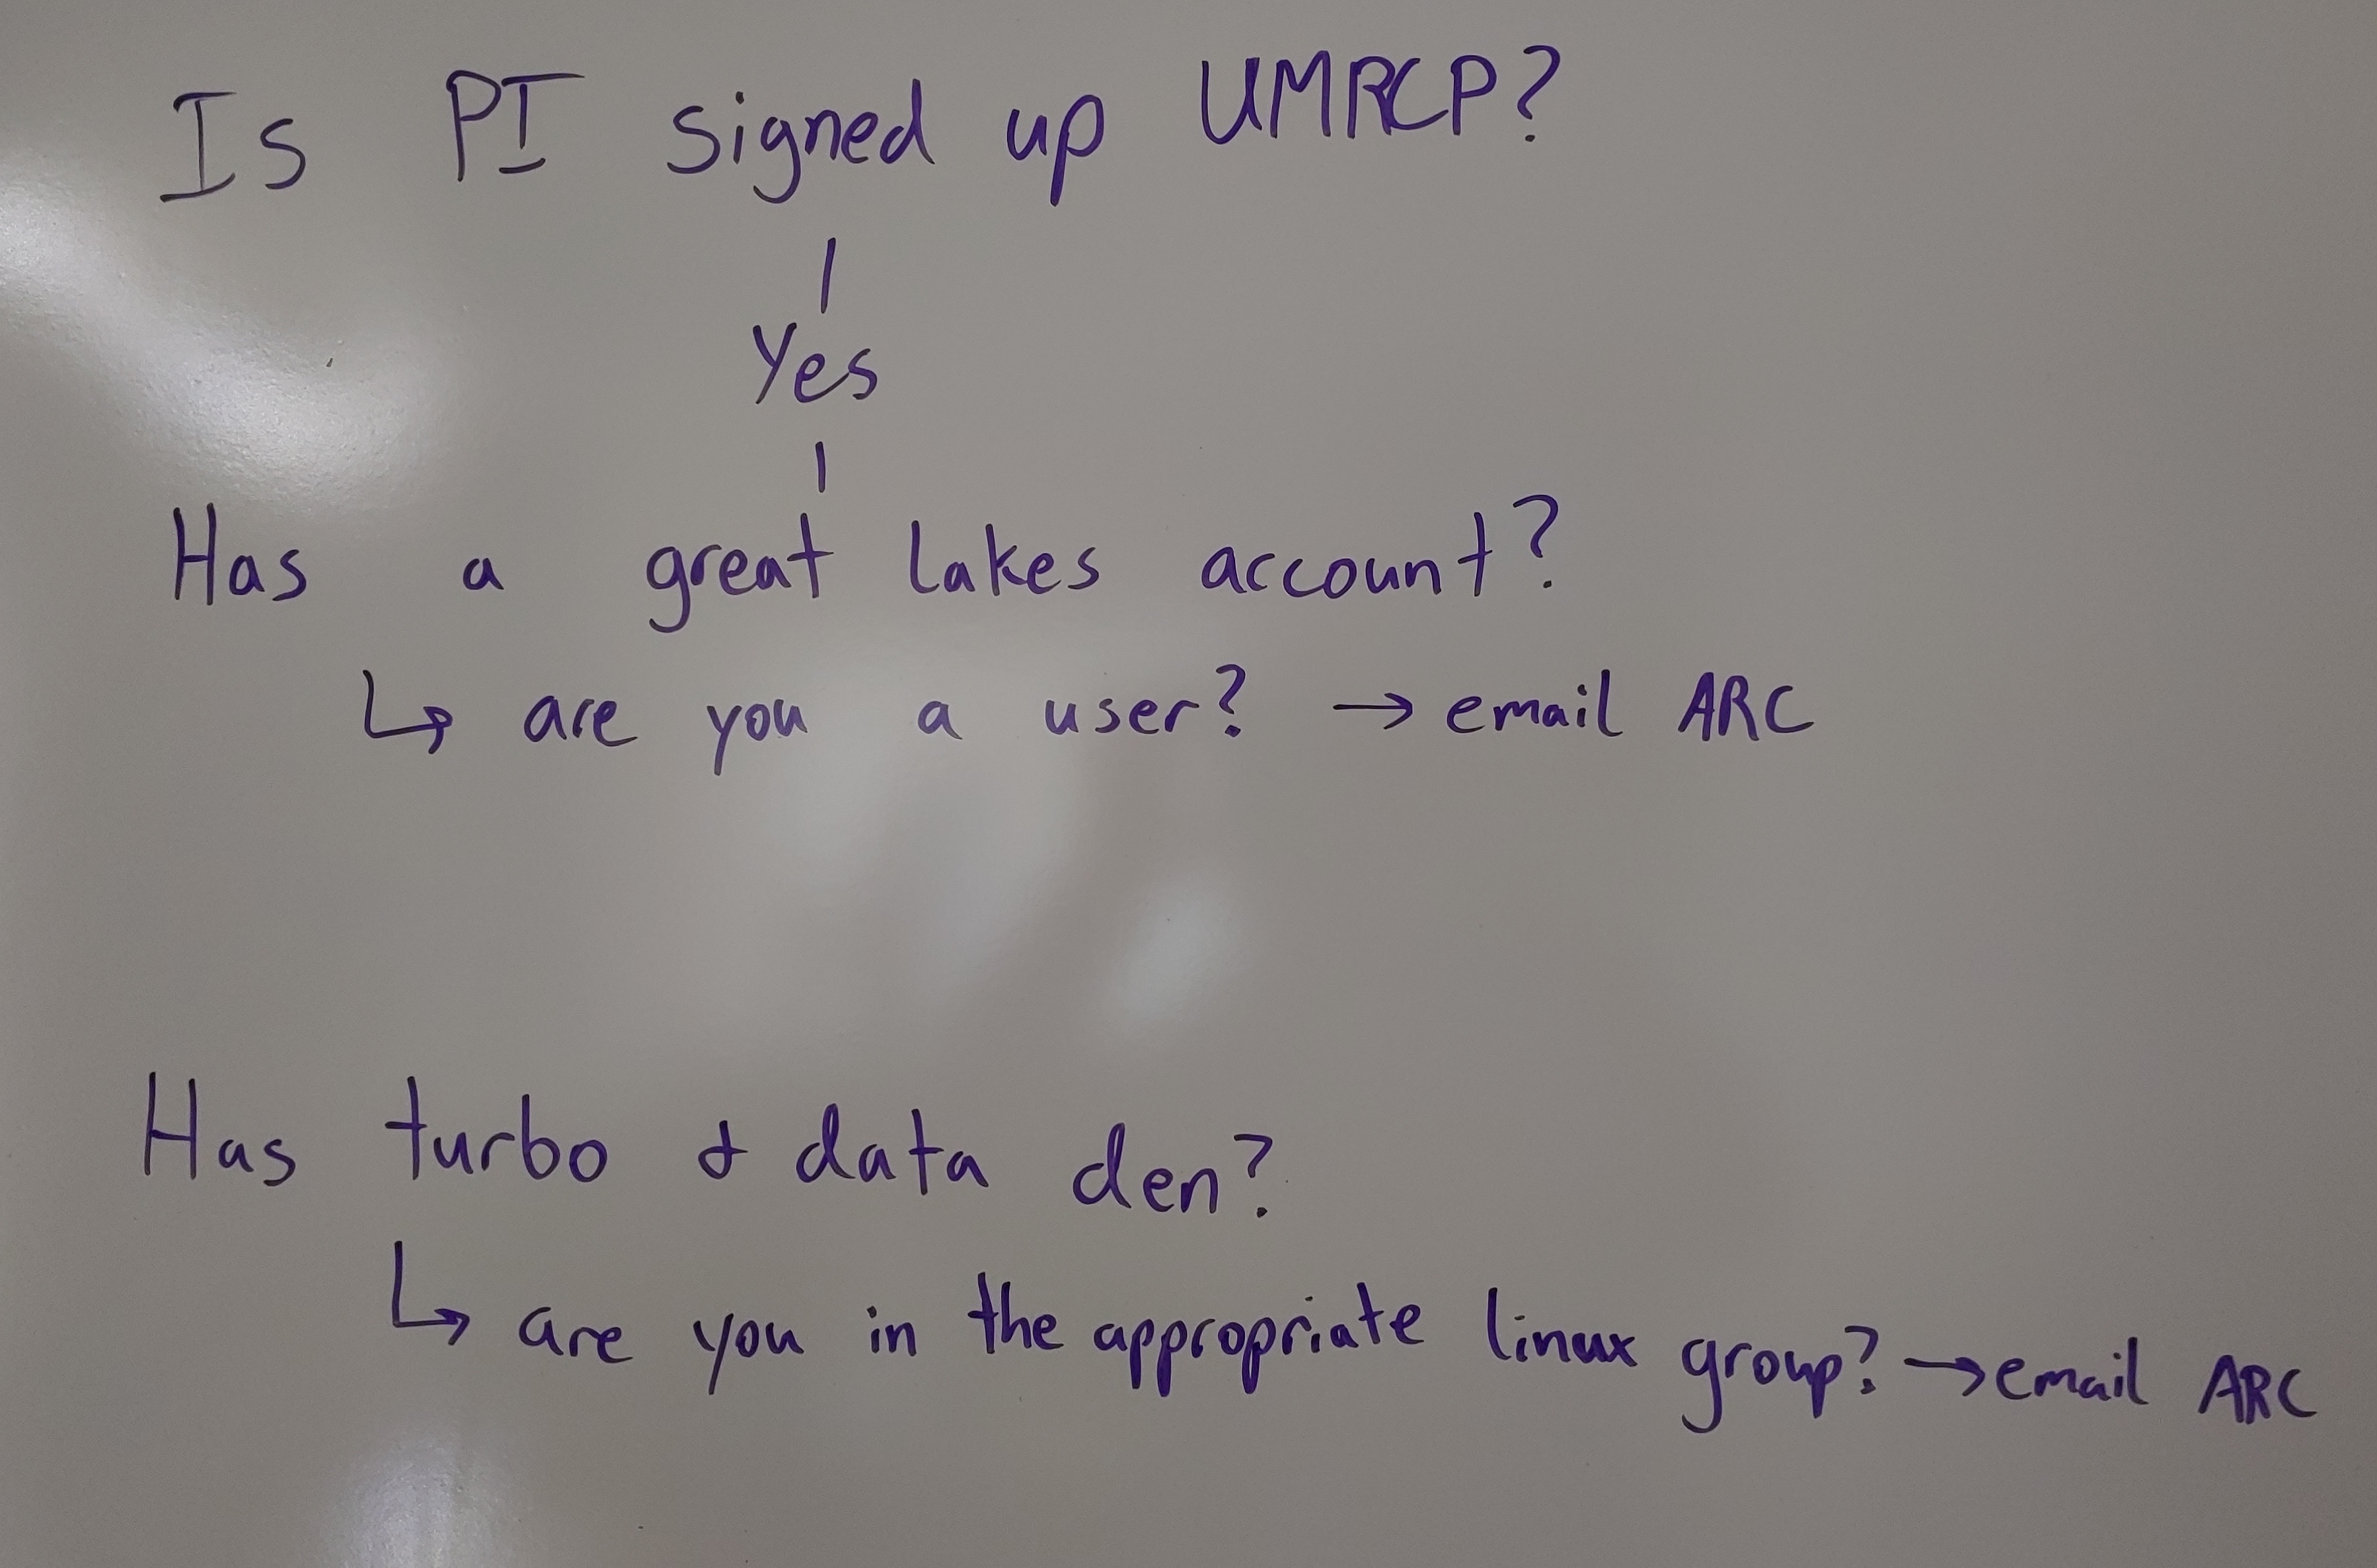 Is PI signed up UMRCP?
Yes
Has a great lakes account?
↳ are you a user? → email ARC
Has turbo & data den?
↳ are you in the appropriate linux group? → email ARC